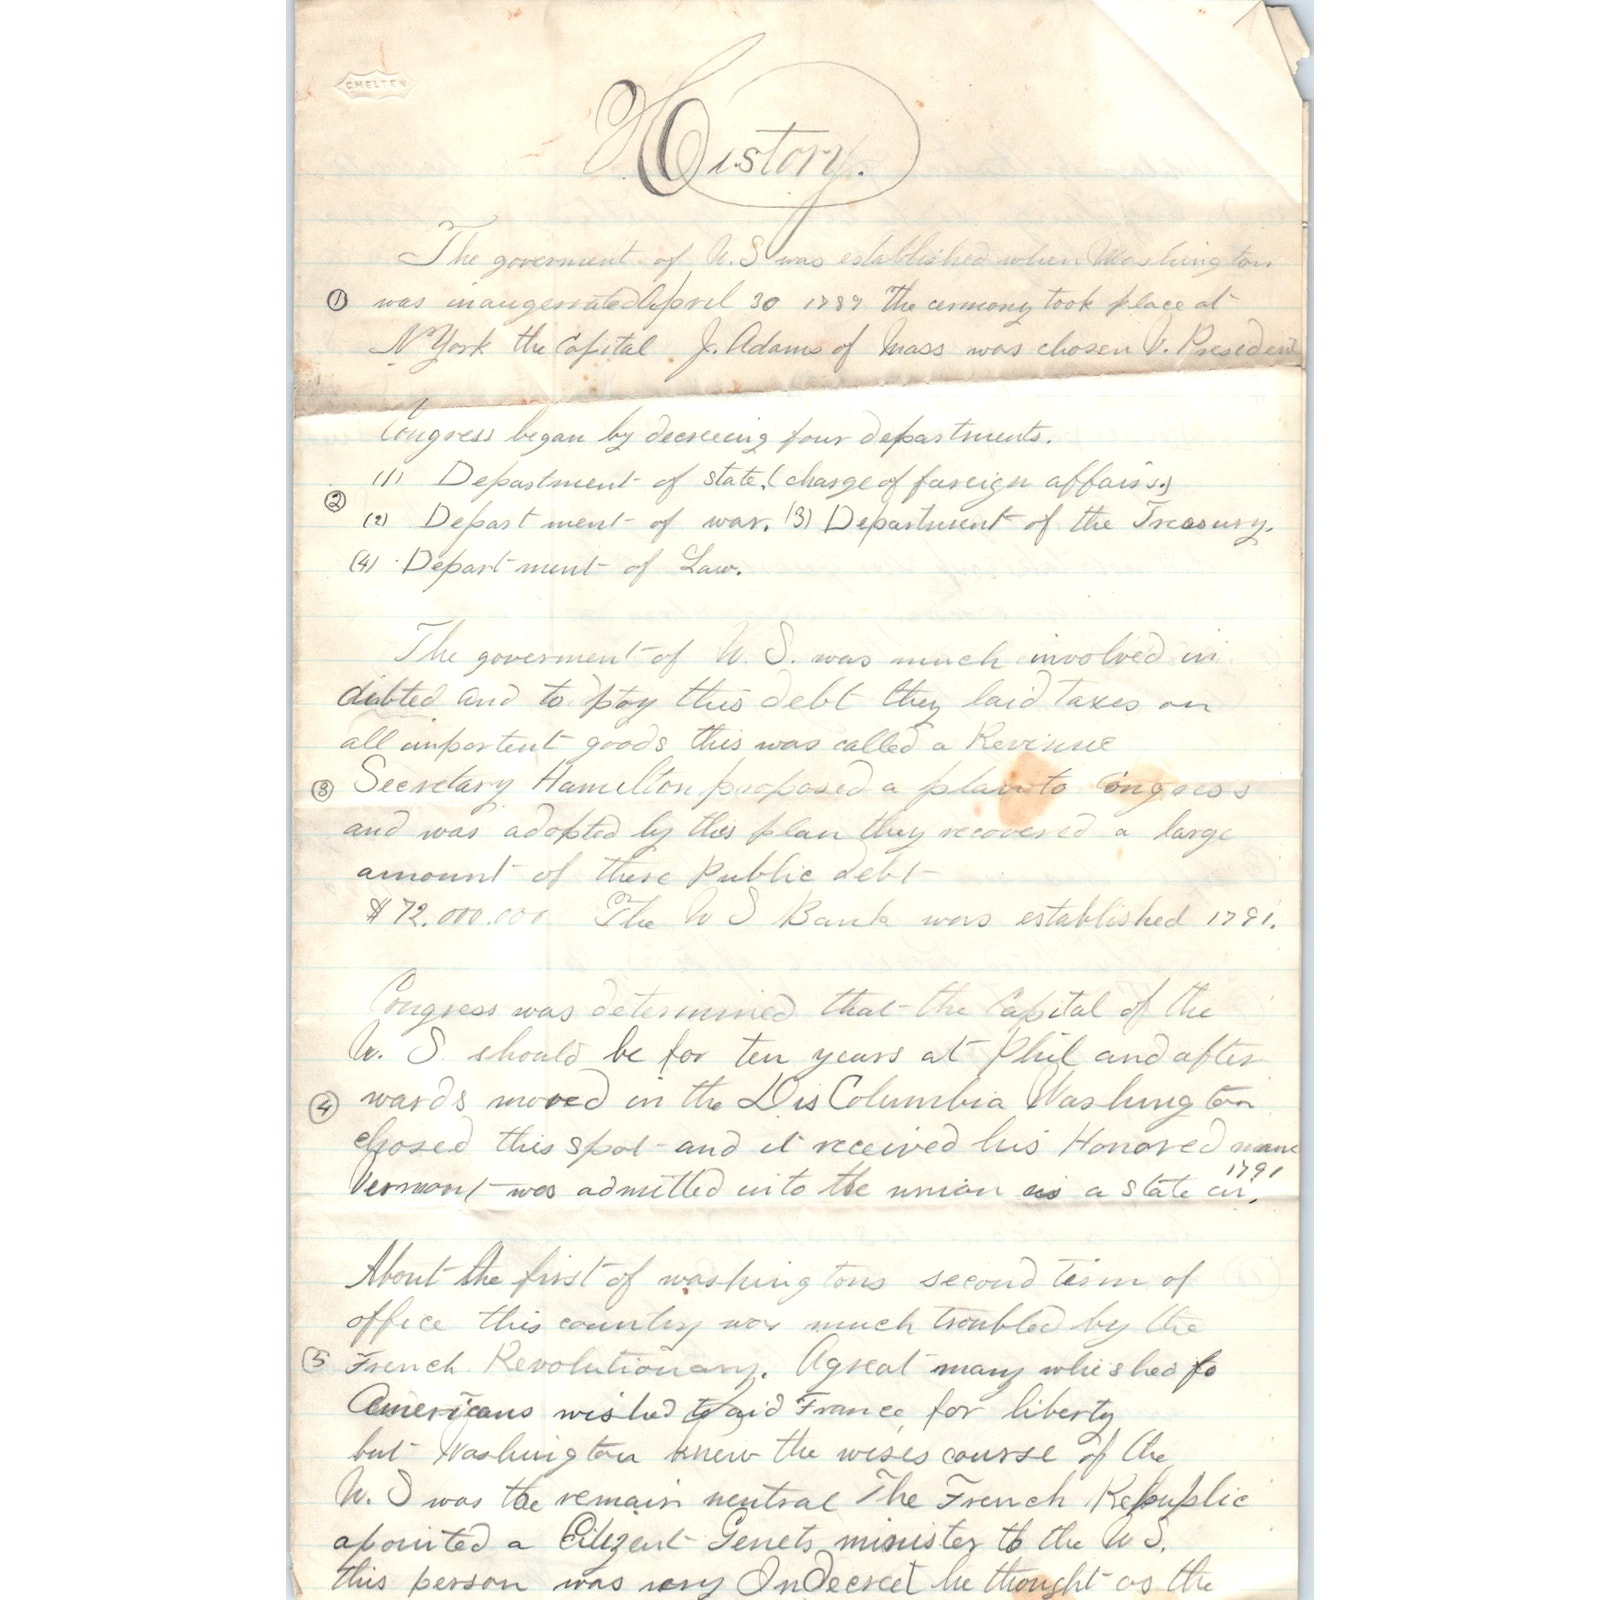 CHELTEN
History.
The goverment of U. S was established when Washington
① was inaugerated April 30 1789 The cermony took place at
N York the Capital J. Adams of Mass was chosen V. President
Congress began by decreeing four departments.
(1) Department of state. (charge of foreign affairs.)
②
(2) Department of war. (3) Department of the Treasury.
(4) Department of Law.
The goverment of U. S. was much involved in
debted and to pay this debt they laid taxes on
all importent goods this was called a Revinue
③ Secretary Hamelton proposed a plan to Congress
and was adopted by this plan they recovered a large
amount of these Public debt
$72.000.000 The U S Bank was established 1791.
Congress was determined that the Capital of the
U. S should be for ten years at Phil and after
④ wards moved in the Dis Columbia Washington
chosed this spot and it received his Honored name
1791
Vermont was admitted into the union as a state in.
About the first of washingtons second term of
office this country was much troubled by the
⑤ French Revolutionary. A great many whished fo
Americans wished to aid France for liberty
but Washington knew the wises course of the
U. S was the remain neutral The French Republic
apointed a Citizent Genets minister to the U S.
this person was very Indecreet he thought as the